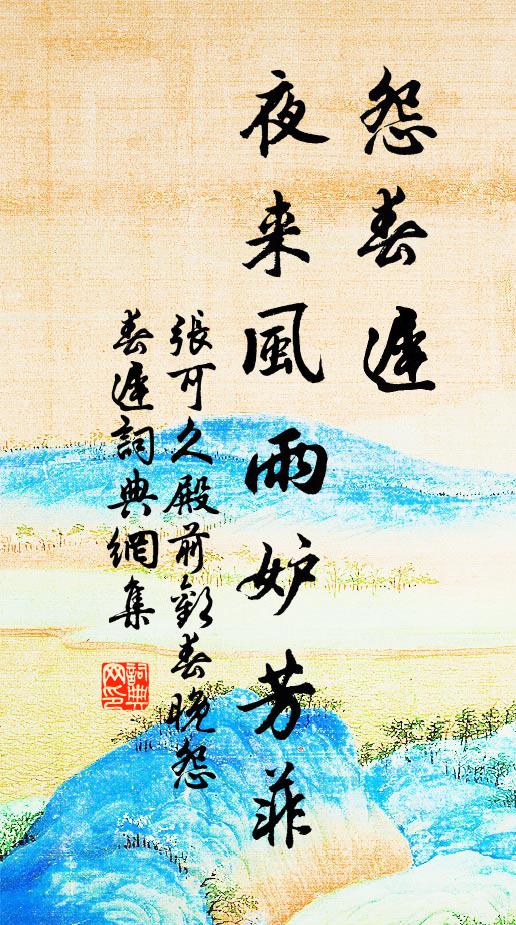 怨春遲
夜来風雨妒芳菲
張可久殿前歡春晚怨
春遲詞典網集
詞典網印